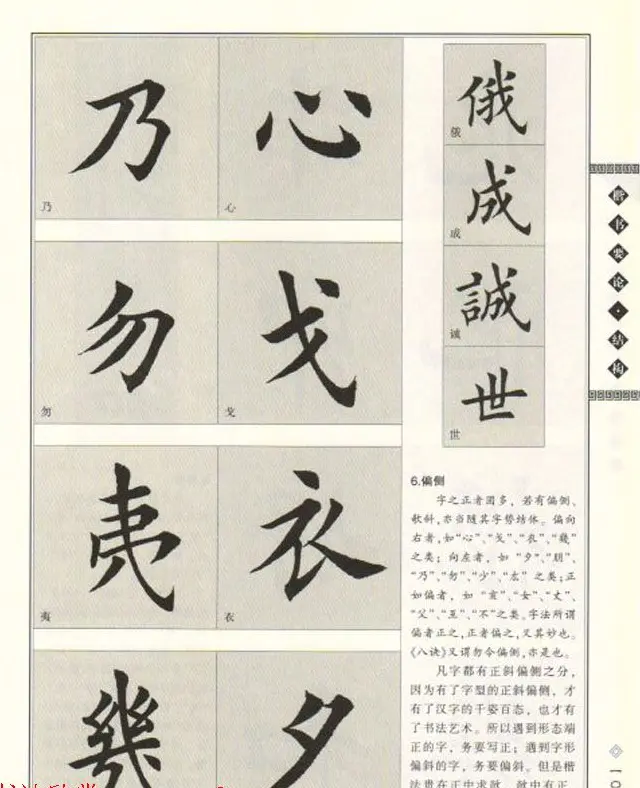 乃
心
乃
心
勿
戈
勿
戈
夷
衣
夷
衣
幾
夕
俄
俄
成
成
誠
诚
世
世
6.偏侧
字之正者固多，若有偏侧、
欹斜，亦当随其字势结体。偏向
右者，如“心”、“戈”、“衣”、“幾”
之类；向左者，如“夕”、“朋”、
“乃”、“勿”、“少”、“厷”之类；正
如偏者，如“亥”、“女”、“丈”、
“父”、“互”、“不”之类。字法所谓
偏者正之，正者偏之，又其妙也。
《八诀》又谓勿令偏侧，亦是也。
凡字都有正斜偏侧之分，
因为有了字型的正斜偏侧，才
有了汉字的千姿百态，也才有
了书法艺术。所以遇到形态端
正的字，务要写正；遇到字形
偏斜的字，务要偏斜。但是楷
法贵在正中求欹，欹中有正，
楷书要论·结构